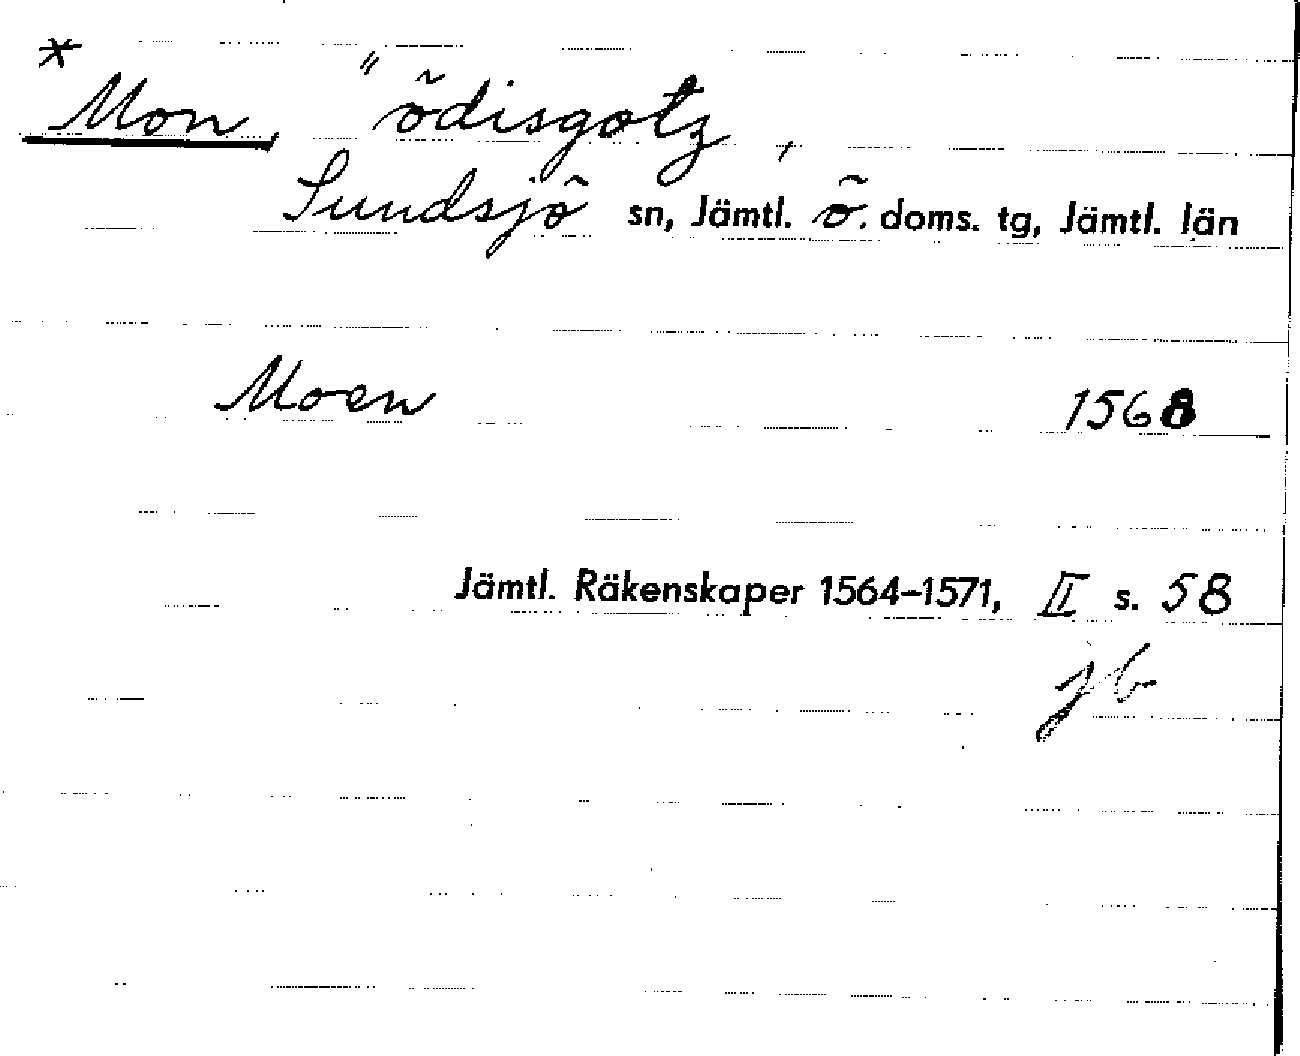 * Mon, "ödisgotz,
Sundsjö sn, Jämtl. ö. doms. tg, Jämtl. län
Moen 1568
Jämtl. Räkenskaper 1564-1571, II s. 58
jb